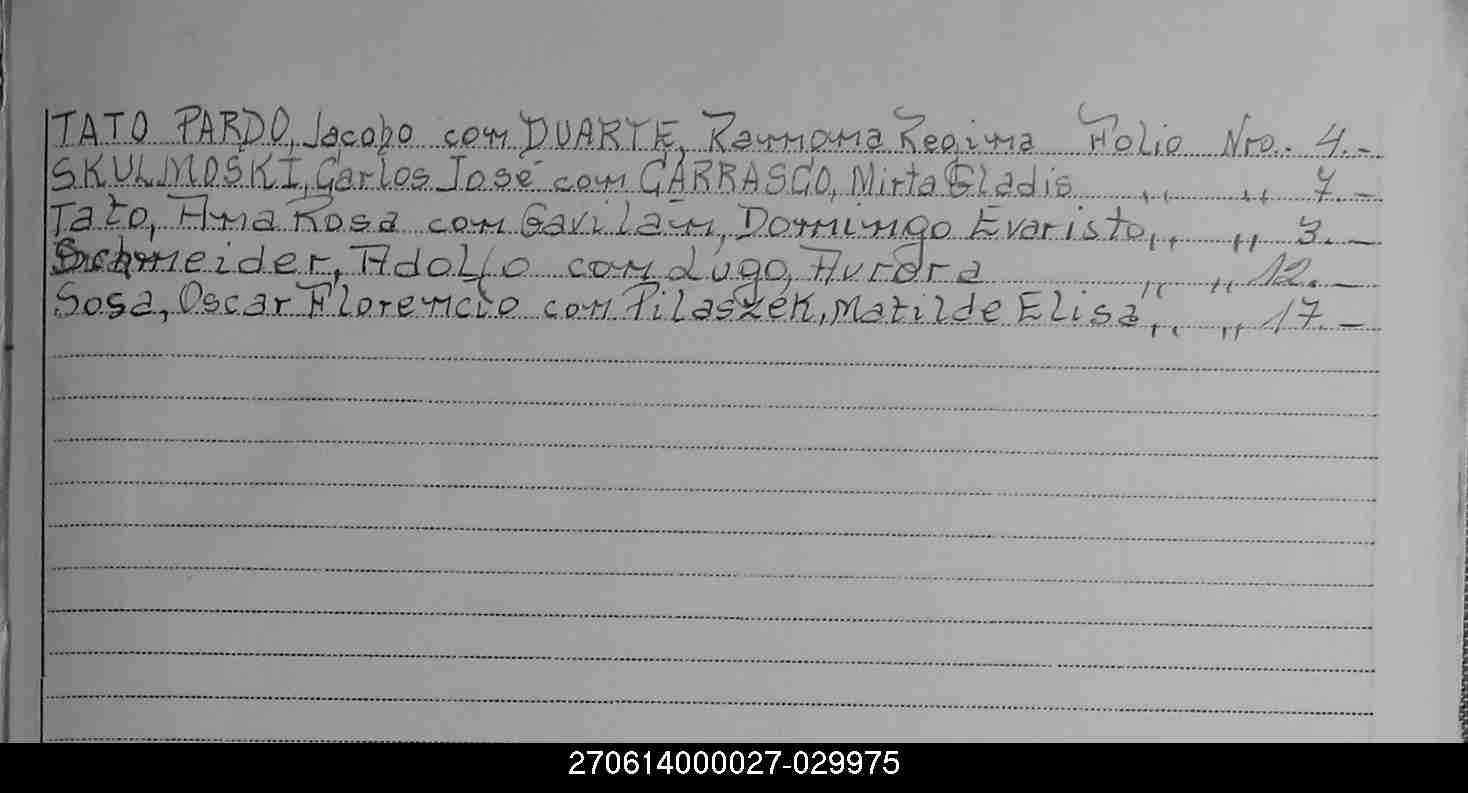 TATO PARDO, Jacobo con DUARTE, Ramona Regina Folio Nro. 4.-
SKULMOSKI, Carlos José con CARRASCO, Mirta Gladis ,, ,, 7.-
Tato, Ana Rosa con Gavilán, Domingo Evaristo ,, ,, 3.-
Schneider, Adolfo con Lugo, Aurora ,, ,, 12.-
Sosa, Oscar Florencio con Pilaszek, Matilde Elisa ,, ,, 17.-
270614000027-029975